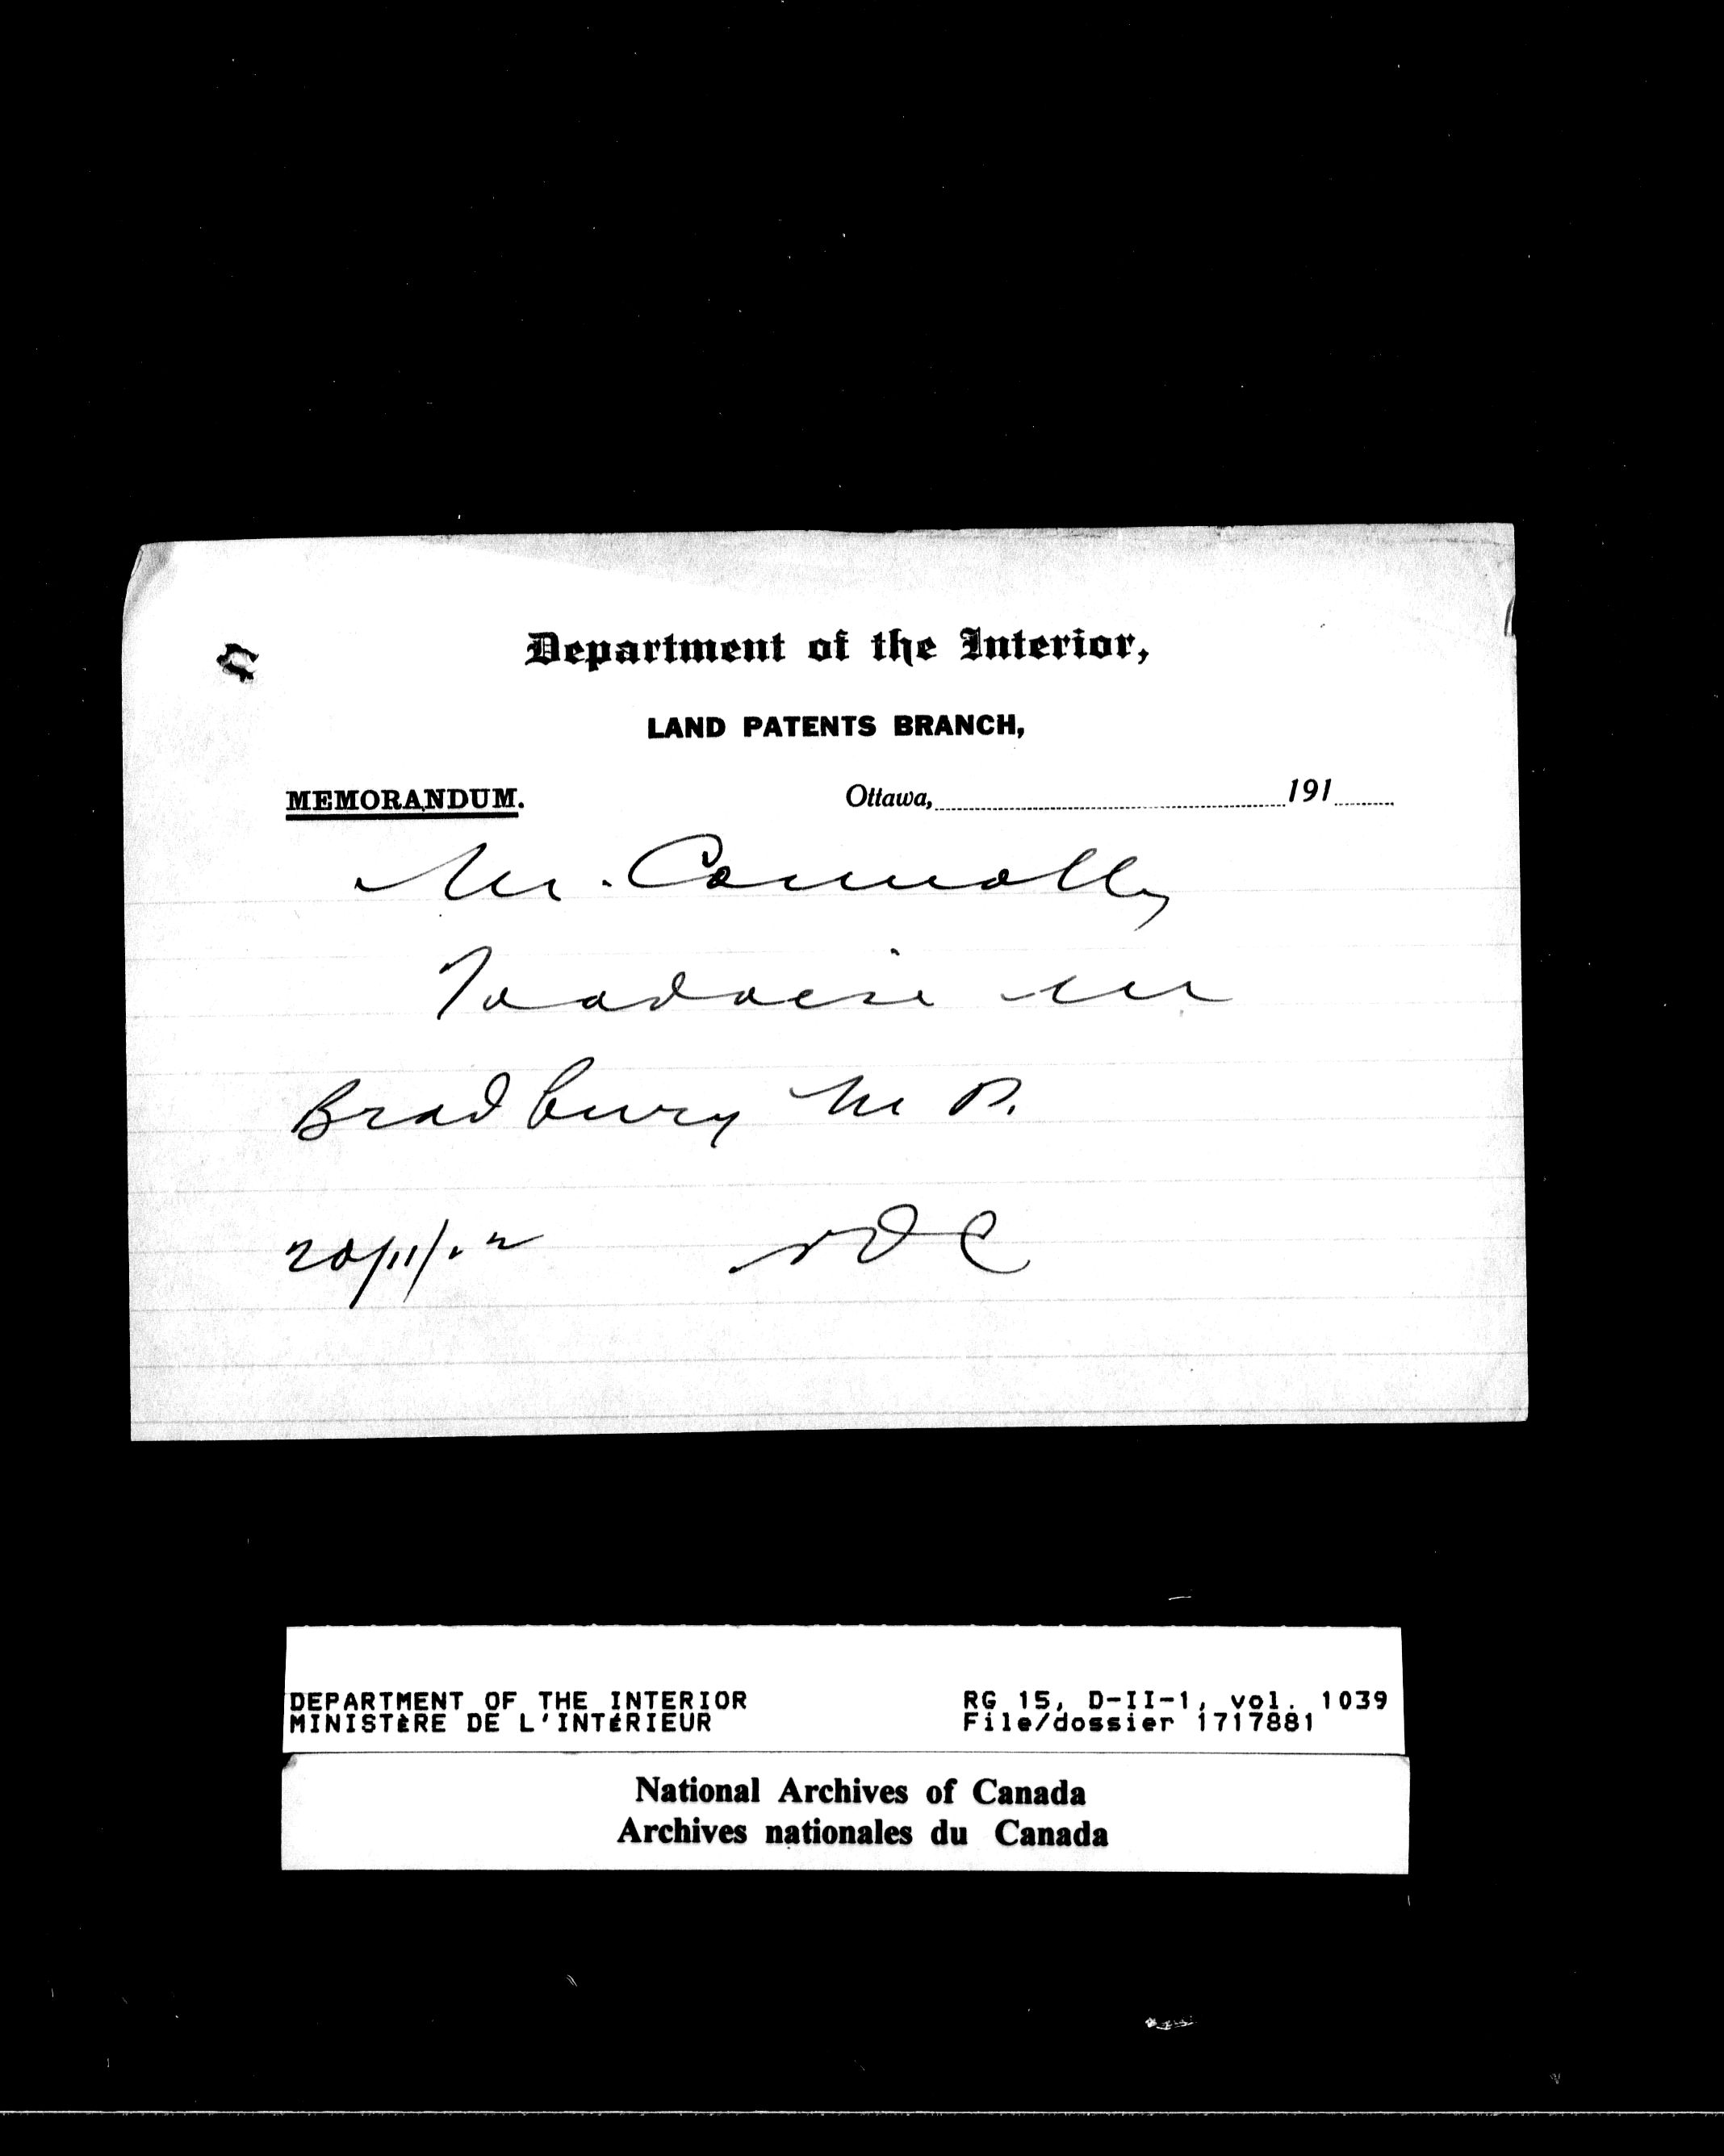 Department of the Interior,
LAND PATENTS BRANCH,
MEMORANDUM. Ottawa, 191
Mr. Connolly
To advise Mr
Bradbury M P.
20/11/12
DEPARTMENT OF THE INTERIOR RG 15, D-II-1, vol. 1039
MINISTÈRE DE L'INTÉRIEUR File/dossier 1717881
National Archives of Canada
Archives nationales du Canada